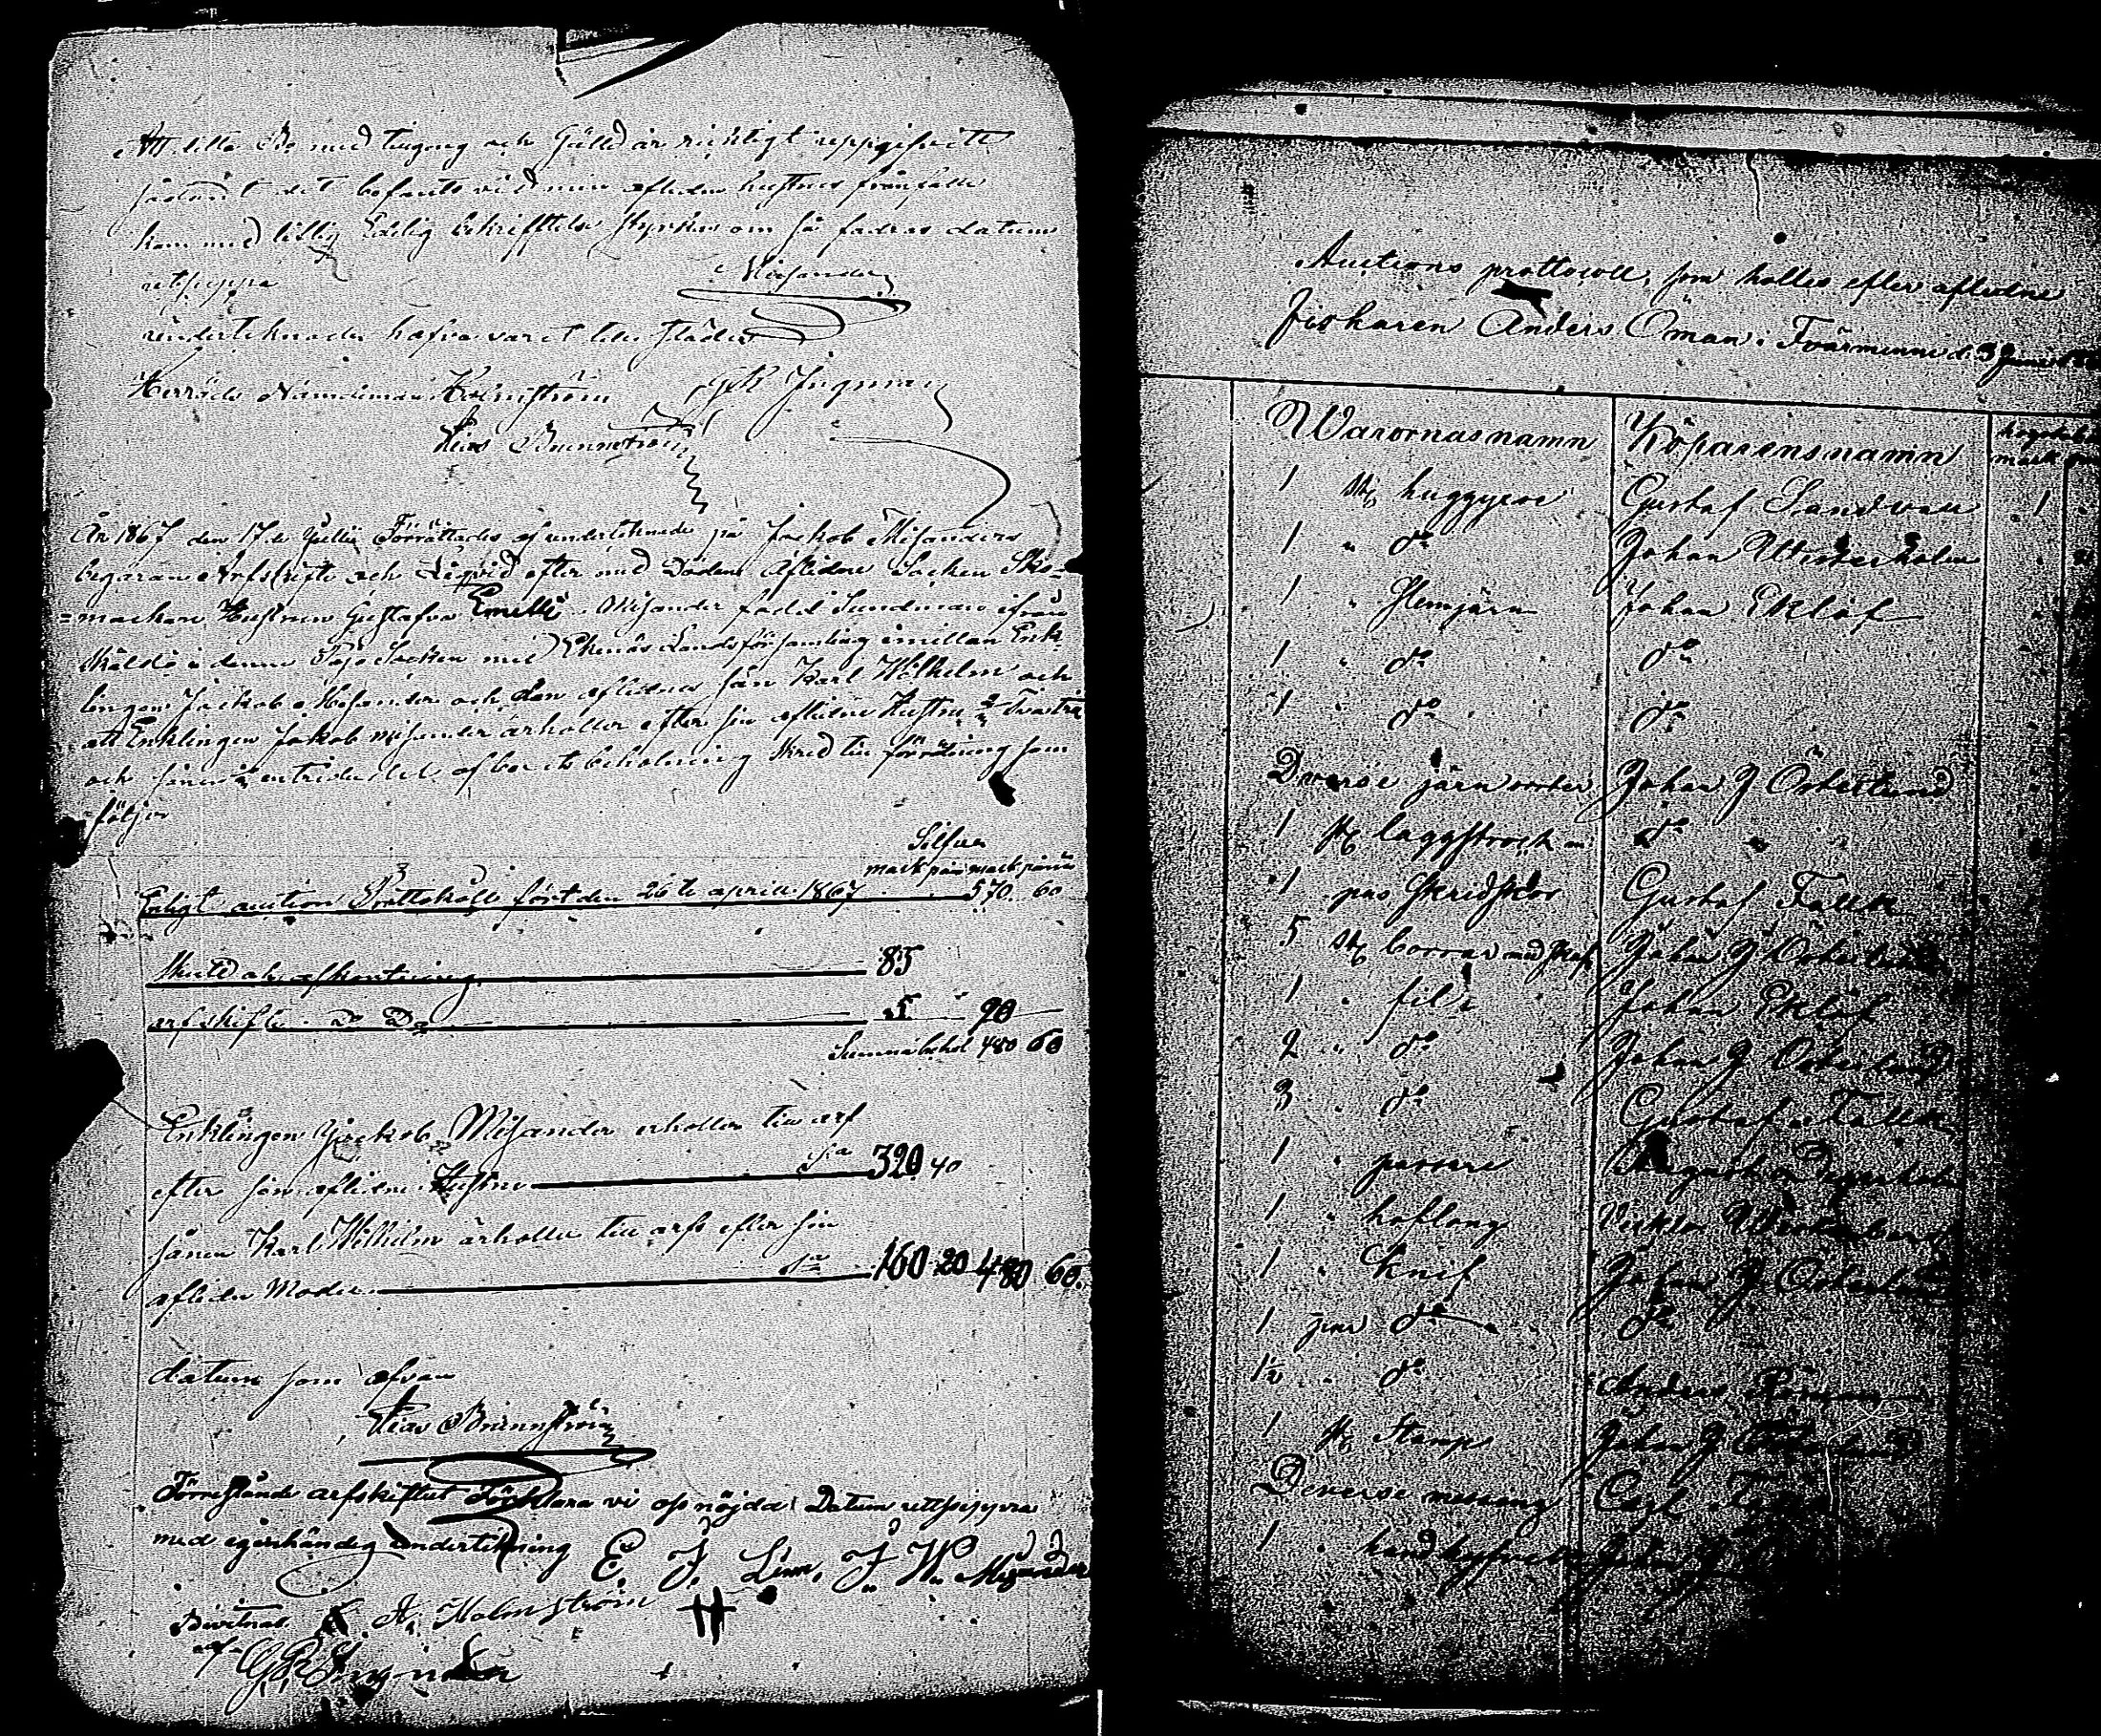 Att detta Bo med tingång och Gäld är richtigt uppgifvitt
sådant det befants vid min afledne hustrus frånfälle
kan med liflig Edelig bekrifftelse styrkas om så fodras datum
utsuppra Misander
underteknade hafva varit tillstädes
Härrads Nämdeman Holmström G R Ingman
Elias Brunnström
År 1867 den 17de Julli Förrättades af undertiknade på Jackob Misanders
begäran Arfskifte och Liqvid efter med Döden Aflidne Socken Sko-
=makare Hustrun Gustafva Emelli Misander född Sundman ifrån
Skåldö i denne Pojo Socken med Ekenäs Landsförsamling imillan Enk-
lingen Jackob Misander och den aflidnes sån Karl Wilhelm och
att Enklingen Jakob Misander ärhåller efter sin aflidne Hustru 2/3 Två tre
och sånen 1/3 en tridedel af boets beholning skred till fördelning som
följer
Silfver
mark pän mark pänni
Enligt auction Prottokoll fört den 26te april 1867 570. 60
Skuld och afkortning 85
arfskifte Do Do 5 90
Summa behol 480 60
Enklingen Jackob Misander erholler till arf
efter sin aflidne Hustru Sa 320. 40
sånen Karl Wilhelm ärholler till arfs efter sin
aflidne Moder Sa 160 20 480 60.
datum som ofvan
Elias Brunnström
Förrestånde arfskiftet Förklara vi oss nöjda Datum uttsuppra
med egenhändig undertikning E. J. Linn, J. W. Misander
Bivitnas K. A. Holmström
af G R Ingman
Auctions prottocoll, som holles efter aflidne
Fiskaren Anders Öman i Tvärminne d. 3 Juni
Warornas namn Köparens namn
mark
1 st huggyxe Gustaf Sandvall 1
1 " do Johan Westerholm
1 " Hemjärn Johan Eklöf
1 " do do
1 " do do
Diverse järn sorter Johan J Österlund
1 st laggstock do
1 par skridskor Gustaf Falk
5 st borrar med skaf Johan J Österlund
1 " fil Johan Eklöf
2 " do Johan J Österlund
3 " do Gustaf Falk
1 " passare August
1 " hoftång Viktor Westerberg
1 " Knif Johan J Österlund
1 par do do
1½ " do Anders
1 st Stamp Johan J Österlund
Diverse messing Carl
1 " Johan J